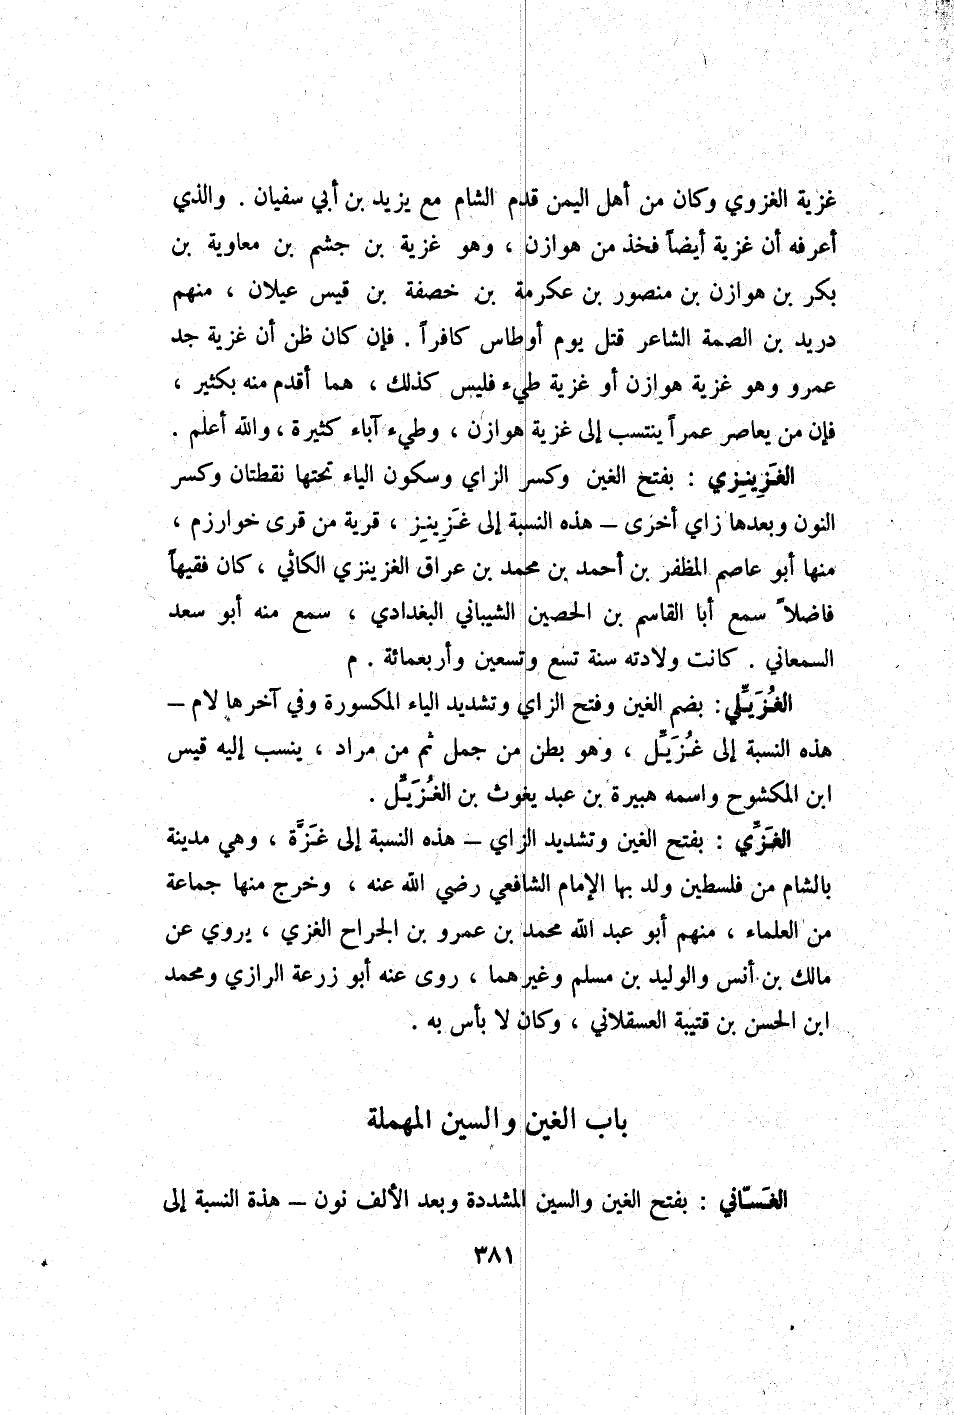 غزية الغزوي وكان من أهل اليمن قدم الشام مع يزيد بن أبي سفيان . والذي
أعرفه أن غزية أيضاً فخذ من هوازن ، وهو غزية بن جشم بن معاوية بن
بكر بن هوازن بن منصور بن عكرمة بن خصفة بن قيس عيلان ، منهم
دريد بن الصمة الشاعر قتل يوم أوطاس كافراً . فإن كان ظن أن غزية جد
عمرو وهو غزية هوازن أو غزية طيء فليس كذلك ، هما أقدم منه بكثير ،
فإن من يعاصر عمراً ينتسب إلى غزية هوازن ، وطيء آباء كثيرة ، والله أعلم .
الغَزِينِزي : بفتح الغين وكسر الزاي وسكون الياء تحتها نقطتان وكسر
النون وبعدها زاي أخرى – هذه النسبة إلى غَزِينِز ، قرية من قرى خوارزم ،
منها أبو عاصم المظفر بن أحمد بن محمد بن عراق الغزينزي الكاثي ، كان فقيهاً
فاضلاً سمع أبا القاسم بن الحصين الشيباني البغدادي ، سمع منه أبو سعد
السمعاني . كانت ولادته سنة تسع وتسعين وأربعمائة . م
الغُزَيِّلي : بضم الغين وفتح الزاي وتشديد الياء المكسورة وفي آخرها لام –
هذه النسبة إلى غُزَيِّل ، وهو بطن من جمل ثم من مراد ، ينسب إليه قيس
ابن المكشوح واسمه هبيرة بن عبد يغوث بن الغُزَيِّل .
الغَزِّي : بفتح الغين وتشديد الزاي – هذه النسبة إلى غَزَّة ، وهي مدينة
بالشام من فلسطين ولد بها الإمام الشافعي رضي الله عنه ، وخرج منها جماعة
من العلماء ، منهم أبو عبد الله محمد بن عمرو بن الجراح الغزي ، يروي عن
مالك بن أنس والوليد بن مسلم وغيرهما ، روى عنه أبو زرعة الرازي ومحمد
ابن الحسن بن قتيبة العسقلاني ، وكان لا بأس به .
باب الغين والسين المهملة
الغَسّاني : بفتح الغين والسين المشددة وبعد الألف نون – هذة النسبة إلى
٣٨١